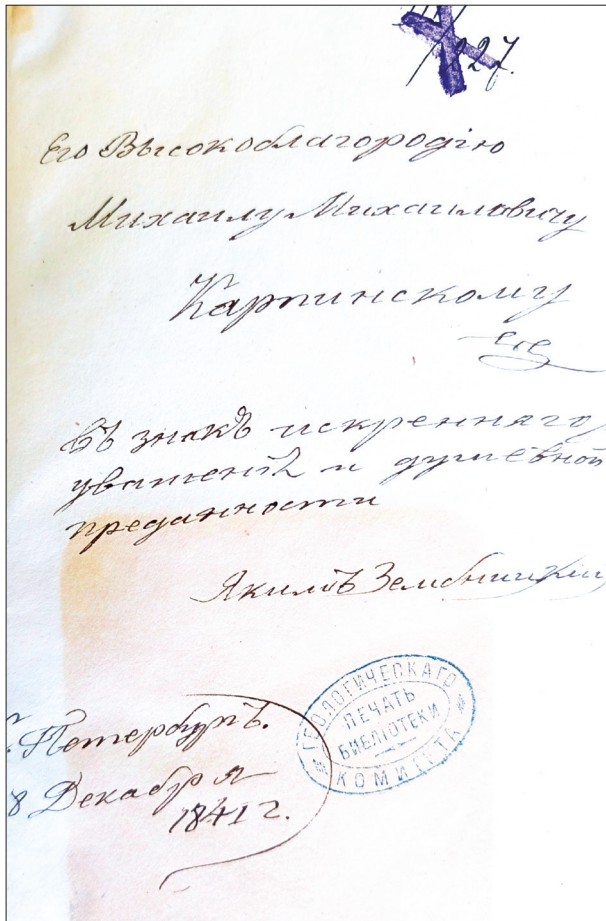 1/227.
Его Высокоблагородiю
Михаилу Михаиловичу
Карпинскому
въ знакъ искренняго
уваженiя и душевной
преданности
Якимъ Зембницкiй
Петербургъ.
8 Декабря
1841 г.
ГЕОЛОГИЧЕСКАГО
ПЕЧАТЬ
БИБЛIОТЕКИ
КОМИТЕТА